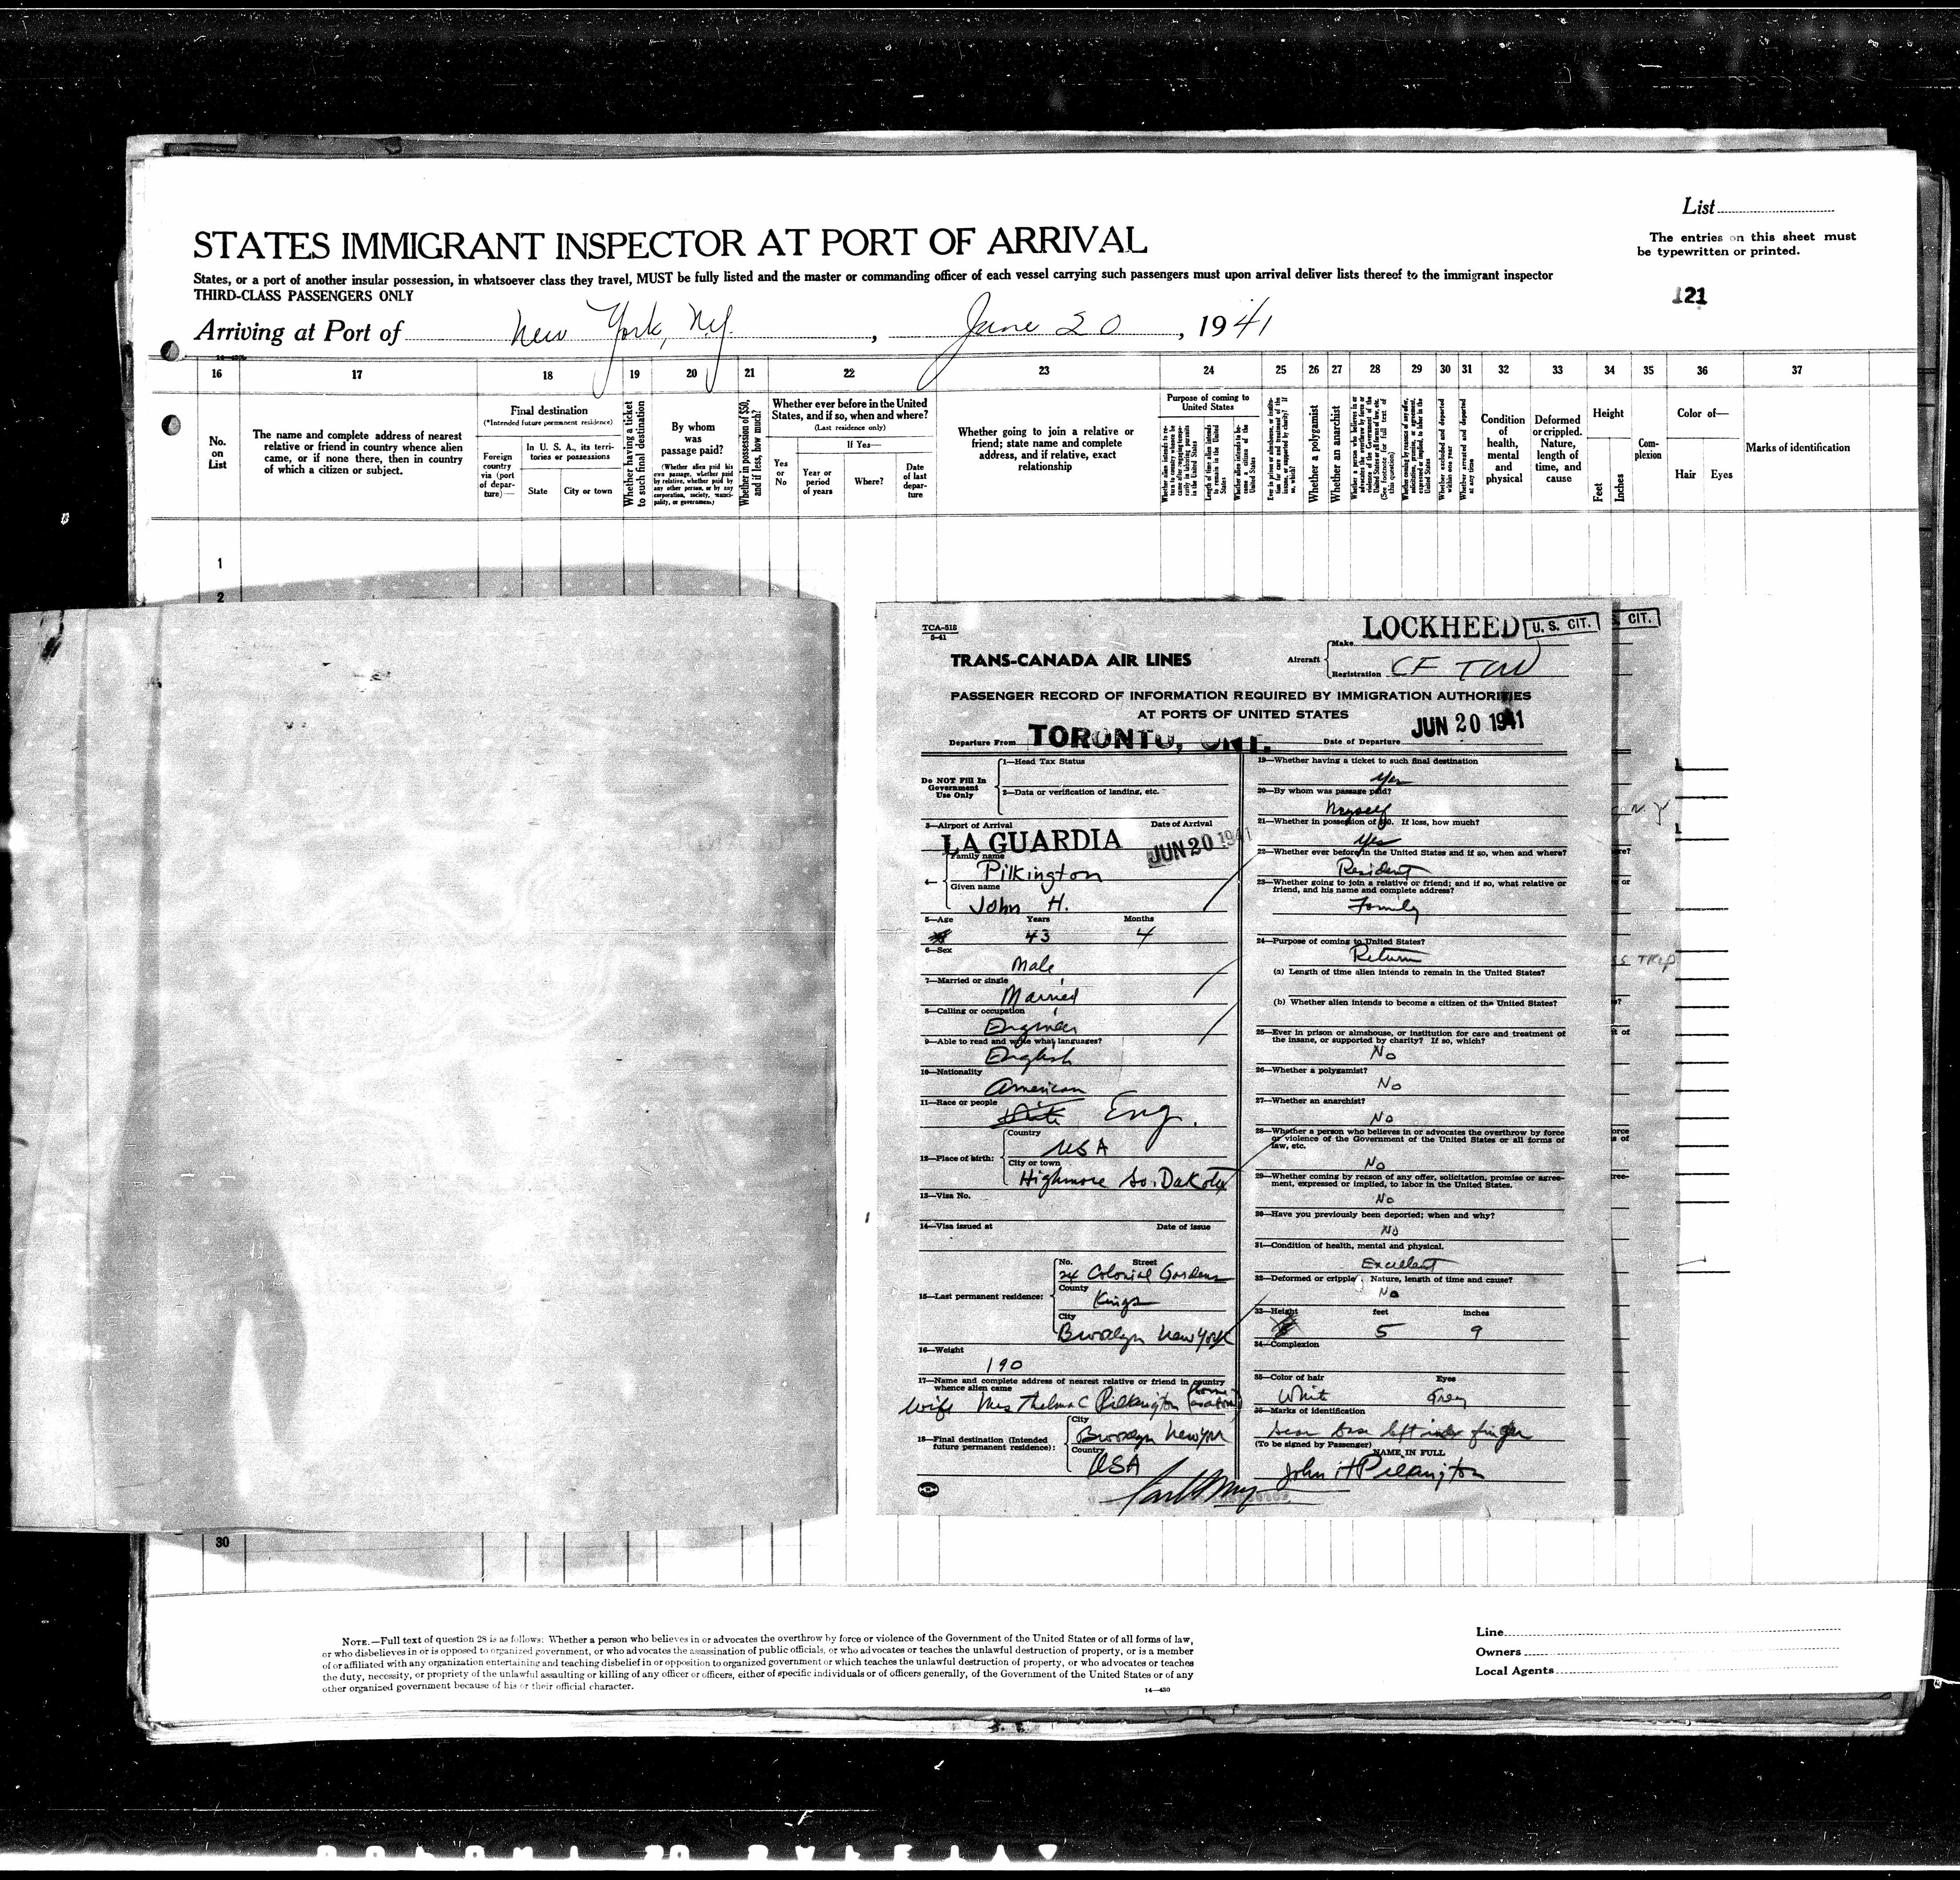 List
The entries on this sheet must
be typewritten or printed.
121
STATES IMMIGRANT INSPECTOR AT PORT OF ARRIVAL
States, or a port of another insular possession, in whatsoever class they travel, MUST be fully listed and the master or commanding officer of each vessel carrying such passengers must upon arrival deliver lists thereof to the immigrant inspector
THIRD-CLASS PASSENGERS ONLY
Arriving at Port of New York, N.Y. , June 20 , 1941
16 17 18 19 20 21 22 23 24 25 26 27 28 29 30 31 32 33 34 35 36 37
No. on List
The name and complete address of nearest
relative or friend in country whence alien
came, or if none there, then in country
of which a citizen or subject.
Final destination
(*Intended future permanent residence)
Foreign country via (port of departure)—
In U. S. A., its territories or possessions
State
City or town
Whether having a ticket to such final destination
By whom was passage paid?
(Whether alien paid his own passage, whether paid by relative, whether paid by any other person, or by any corporation, society, municipality, or government.)
Whether in possession of $50, and if less, how much?
Whether ever before in the United
States, and if so, when and where?
(Last residence only)
Yes or No
If Yes—
Year or period of years
Where?
Date of last departure
Whether going to join a relative or
friend; state name and complete
address, and if relative, exact
relationship
Purpose of coming to
United States
Length of time alien intends to remain in the United States
Whether a polygamist
Whether an anarchist
Condition of health, mental and physical
Deformed or crippled. Nature, length of time, and cause
Height
Feet
Inches
Complexion
Color of—
Hair
Eyes
Marks of identification
1
2
30
TCA-518
5-41
TRANS-CANADA AIR LINES
Aircraft
Make LOCKHEED
U. S. CIT.
CIT.
Registration CF TCW
PASSENGER RECORD OF INFORMATION REQUIRED BY IMMIGRATION AUTHORITIES
AT PORTS OF UNITED STATES
Departure From TORONTO, ONT.
Date of Departure JUN 20 1941
Do NOT Fill In
Government
Use Only
1—Head Tax Status
2—Data or verification of landing, etc.
3—Airport of Arrival
Date of Arrival
LA GUARDIA
JUN 20 1941
4—
Family name
Pilkington
Given name
John H.
5—Age Years Months
43 4
6—Sex
Male
7—Married or single
Married
8—Calling or occupation
Engineer
9—Able to read and write what languages?
English
10—Nationality
American
11—Race or people
White Eng.
12—Place of birth:
Country
USA
City or town
Highmore So. Dakota
13—Visa No.
14—Visa issued at Date of issue
15—Last permanent residence:
No. Street
24 Colonial Gardens
County
Kings
City
Brooklyn New York
16—Weight
190
17—Name and complete address of nearest relative or friend in country
whence alien came
Wife Mrs Thelma C Pilkington
18—Final destination (Intended
future permanent residence):
City
Brooklyn New York
Country
USA
19—Whether having a ticket to such final destination
Yes
20—By whom was passage paid?
Myself
21—Whether in possession of $50. If less, how much?
Yes
22—Whether ever before in the United States and if so, when and where?
Resident
23—Whether going to join a relative or friend; and if so, what relative or
friend, and his name and complete address?
Family
24—Purpose of coming to United States?
Return
(a) Length of time alien intends to remain in the United States?
(b) Whether alien intends to become a citizen of the United States?
25—Ever in prison or almshouse, or institution for care and treatment of
the insane, or supported by charity? If so, which?
No
26—Whether a polygamist?
No
27—Whether an anarchist?
No
28—Whether a person who believes in or advocates the overthrow by force
or violence of the Government of the United States or all forms of
law, etc.
No
29—Whether coming by reason of any offer, solicitation, promise or agree-
ment, expressed or implied, to labor in the United States.
No
30—Have you previously been deported; when and why?
No
31—Condition of health, mental and physical.
Excellent
32—Deformed or cripple. Nature, length of time and cause?
No
33—Height feet inches
5 9
34—Complexion
35—Color of hair Eyes
White Grey
36—Marks of identification
left index finger
(To be signed by Passenger)
NAME IN FULL
John H Pilkington
N. Y
TRIP
NOTE.—Full text of question 28 is as follows: Whether a person who believes in or advocates the overthrow by force or violence of the Government of the United States or of all forms of law,
or who disbelieves in or is opposed to organized government, or who advocates the assassination of public officials, or who advocates or teaches the unlawful destruction of property, or is a member
of or affiliated with any organization entertaining and teaching disbelief in or opposition to organized government or which teaches the unlawful destruction of property, or who advocates or teaches
the duty, necessity, or propriety of the unlawful assaulting or killing of any officer or officers, either of specific individuals or of officers generally, of the Government of the United States or of any
other organized government because of his or their official character.
14—430
Line
Owners
Local Agents